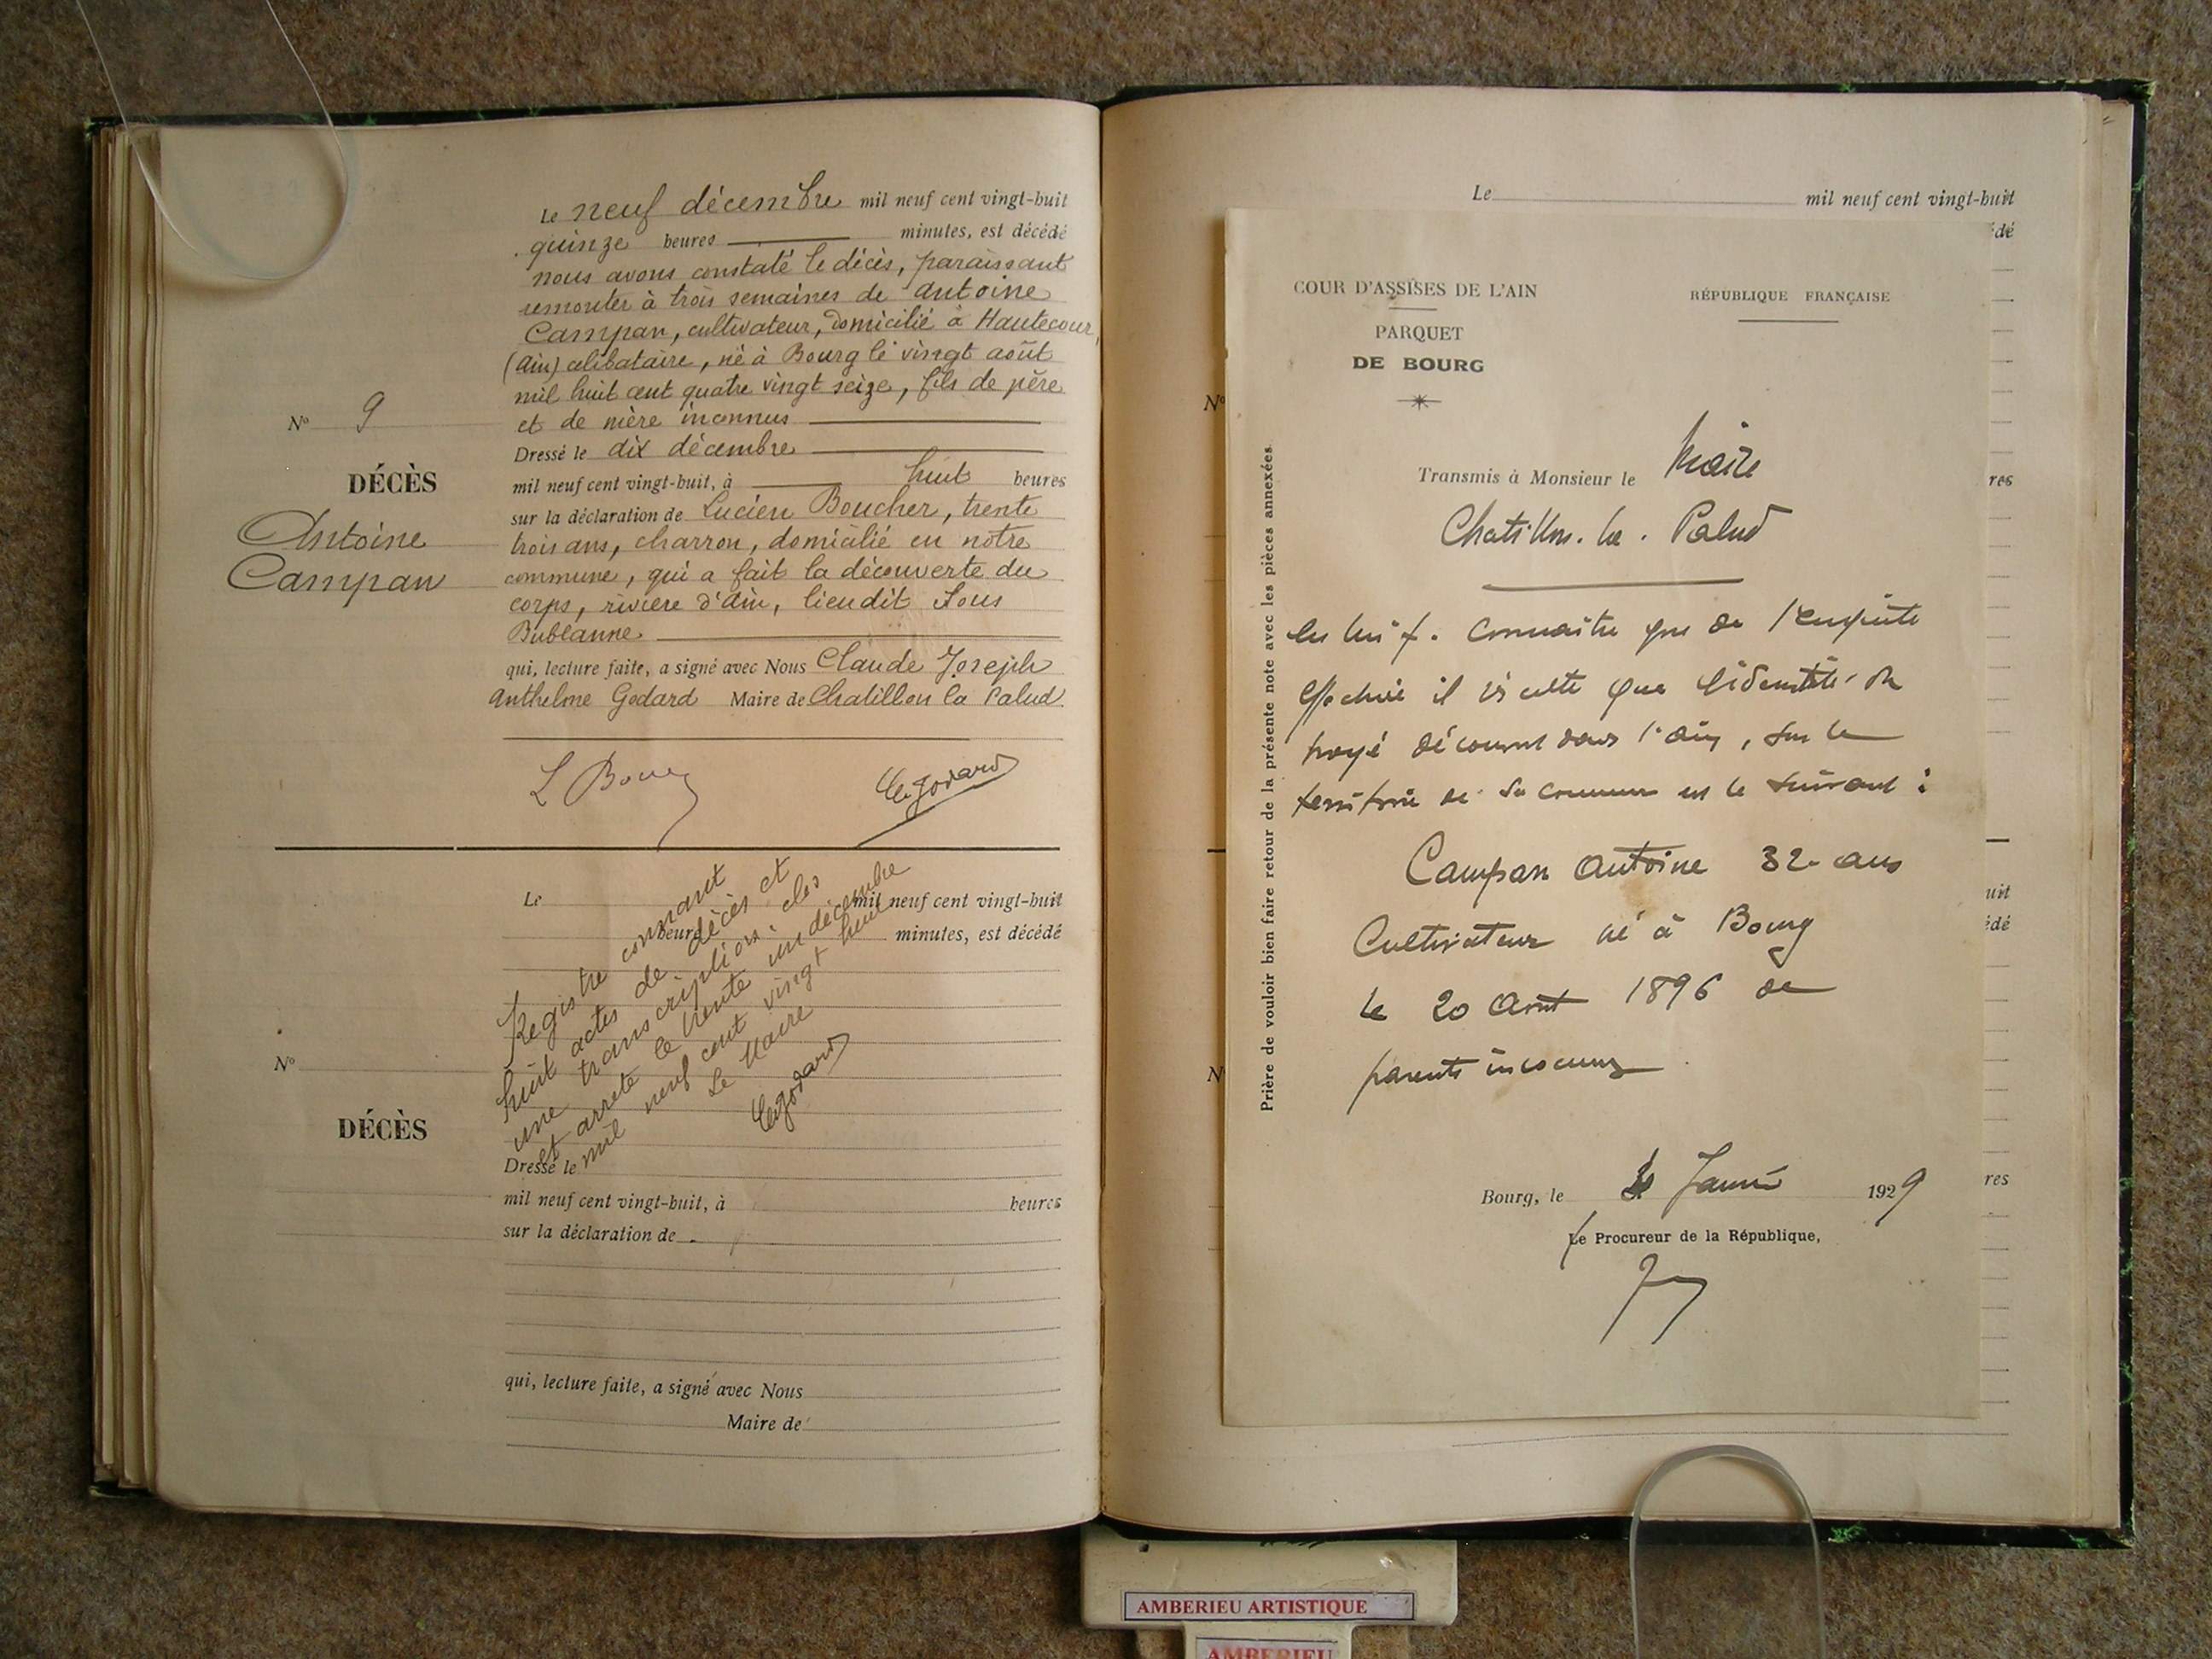 Le neuf décembre mil neuf cent vingt-huit
quinze heures minutes, est décédé
nous avons constaté le décès, paraissant
remonter à trois semaines de Antoine
Campan, cultivateur, domicilié à Hautecour,
(Ain) célibataire, né à Bourg le vingt août
mil huit cent quatre vingt seize, fils de père
et de mère inconnus
Dressé le dix décembre
mil neuf cent vingt-huit, à huit heures
sur la déclaration de Lucien Boucher, trente
trois ans, charron, domicilié en notre
commune, qui a fait la découverte du
corps, rivière d'Ain, lieudit Sous
Bublanne
qui, lecture faite, a signé avec Nous Claude Joseph
Anthelme Godard Maire de Chatillon la Palud
N° 9
DÉCÈS
Antoine
Campan
Le mil neuf cent vingt-huit
heures minutes, est décédé
Registre comprenant
huit actes de décès et
une transcription. clos
et arrêté le trente un décembre
mil neuf cent vingt huit
Le Maire
N°
DÉCÈS
Dressé le
mil neuf cent vingt-huit, à heures
sur la déclaration de
qui, lecture faite, a signé avec Nous
Maire de
Le mil neuf cent vingt-huit
COUR D'ASSISES DE L'AIN
PARQUET
DE BOURG
RÉPUBLIQUE FRANÇAISE
Transmis à Monsieur le Maire
Chatillon. la. Palud
en lui f. connaître que de l'enquête
effectuée il résulte que l'identité du
noyé découvert dans l'Ain, sur le
territoire de sa commune est le suivant :
Campan Antoine 32 ans
Cultivateur né à Bourg
le 20 Août 1896 de
parents inconnus
Bourg, le Janvier 1929
Le Procureur de la République,
Prière de vouloir bien faire retour de la présente note avec les pièces annexées
AMBERIEU ARTISTIQUE
AMBERIEU